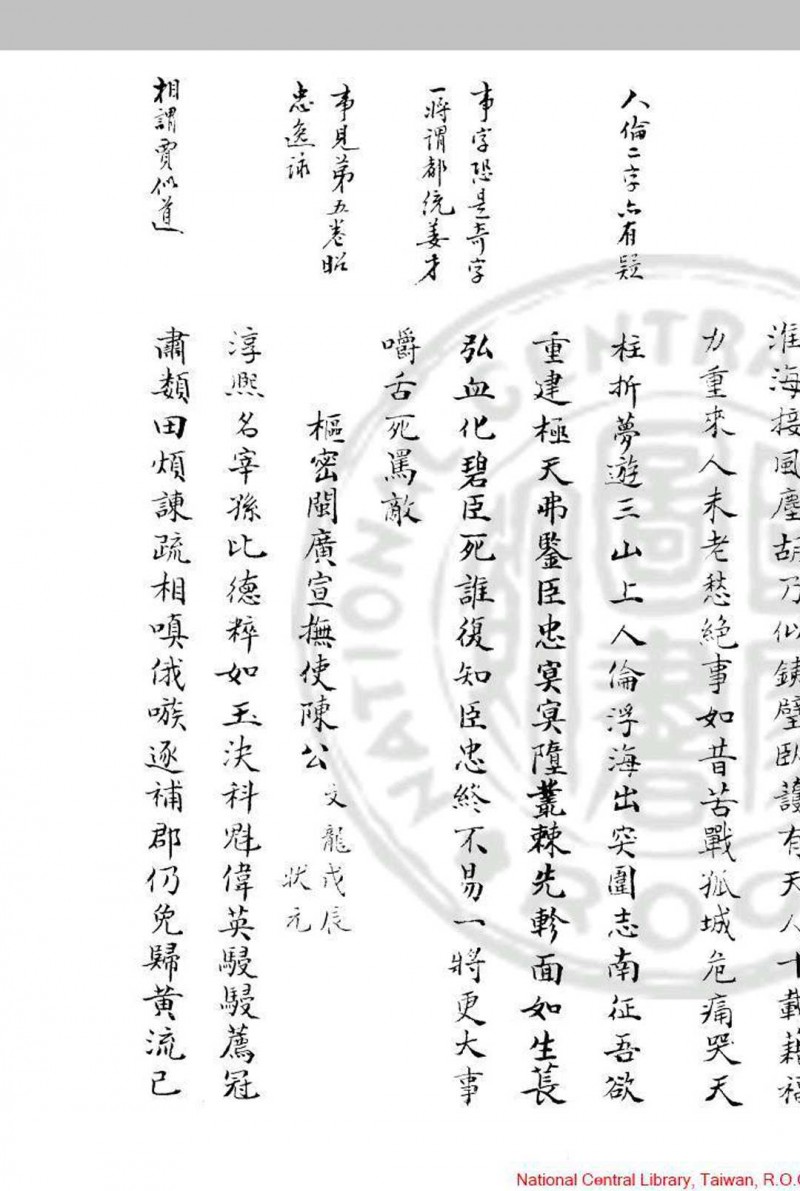 淮海接風塵胡乃似銕壁臥護有天人十載藉福
力重來人未老愁絶事如昔苦戰孤城危痛哭天
人倫二字亦有疑
柱折夢遊三山上人倫浮海出突圍志南征吾欲
重建極天弗鑒臣忠寞寞隳叢棘先軫面如生萇
事字恐是奇字
弘血化碧臣死誰復知臣忠終不易一將更大事
一將謂都統姜才
嚼舌死罵敵
事見第五卷昭
忠逸詠
樞密閩廣宣撫使陳公
文龍戊辰
狀元
淳熙名宰孫比德粹如玉決科魁偉英駸駸薦冠
相謂賈似道
肅類田煩諫疏相嗔俄嗾逐補郡仍免歸黄流已
National Central Library, Taiwan, R.O.C
NATIONAL CENTRAL
R.O.C